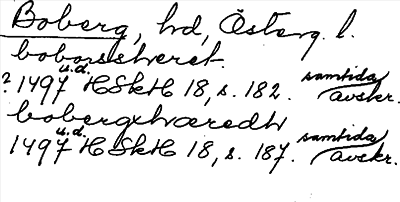 Boberg, hd, Österg. l.
bobossheret
? 1497 u.d. HSkH 18, s. 182. samtida avskr.
bobergxhæredh
1497 u.d. HSkH 18, s. 187. samtida avskr.